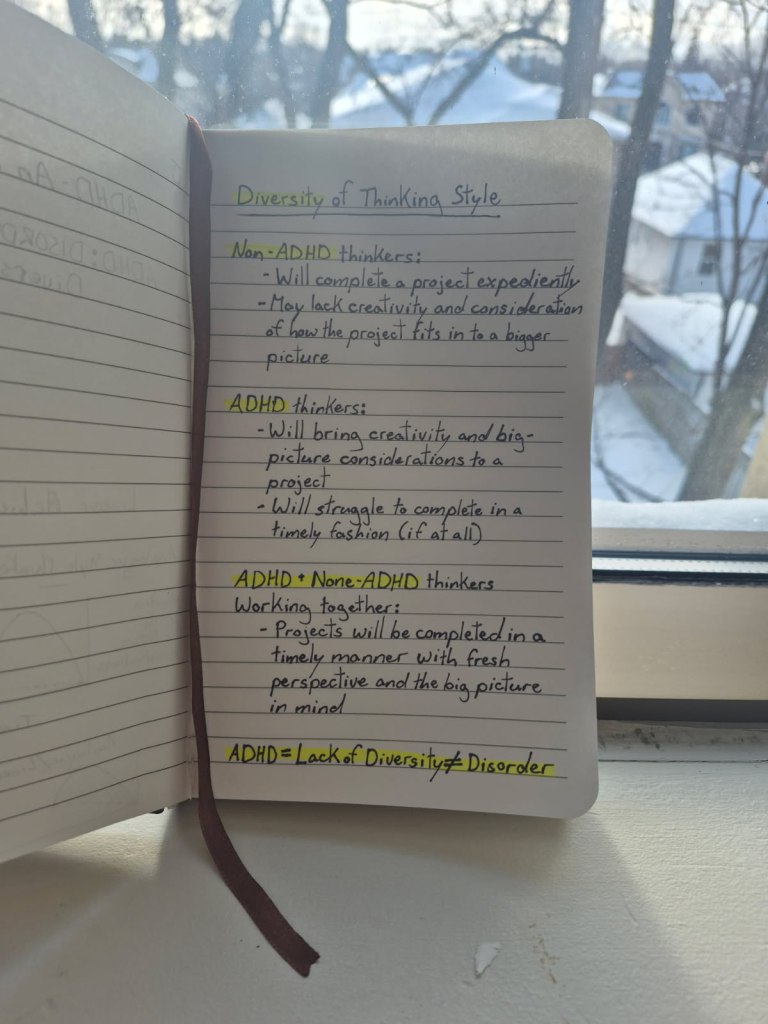 Diversity of Thinking Style
Non-ADHD thinkers:
- Will complete a project expediently
- May lack creativity and consideration
of how the project fits in to a bigger
picture
ADHD thinkers:
- Will bring creativity and big-
picture considerations to a
project
- Will struggle to complete in a
timely fashion (if at all)
ADHD + None-ADHD thinkers
Working together:
- Projects will be completed in a
timely manner with fresh
perspective and the big picture
in mind
ADHD = Lack of Diversity ≠ Disorder